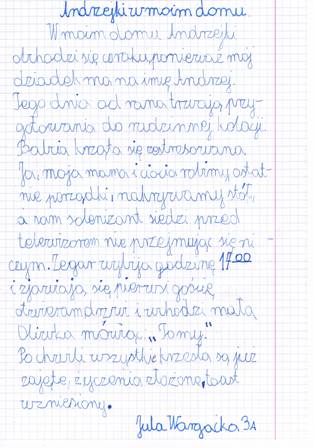 Andrzejki w moim domu
W moim domu Andrzejki
obchodzi się co roku ponieważ mój
dziadek ma na imię Andrzej.
Tego dnia od rana trwają przy-
gotowania do rodzinnej kolacji.
Babcia krząta się zestresowana.
Ja, moja mama i ciocia robimy ostat-
nie porządki, nakrywamy stół,
a sam solenizant siedzi przed
telewizorem nie przejmując się ni-
czym. Zegar wybija godzinę 17.00
i zjawiają się pierwsi goście
otwieram drzwi i wchodzi mała
Oliwka mówiąc "Tomy."
Po chwili wszystkie krzesła są już
zajęte, życzenia złożone, toast
wzniesiony.
Jula Wargacka 3A